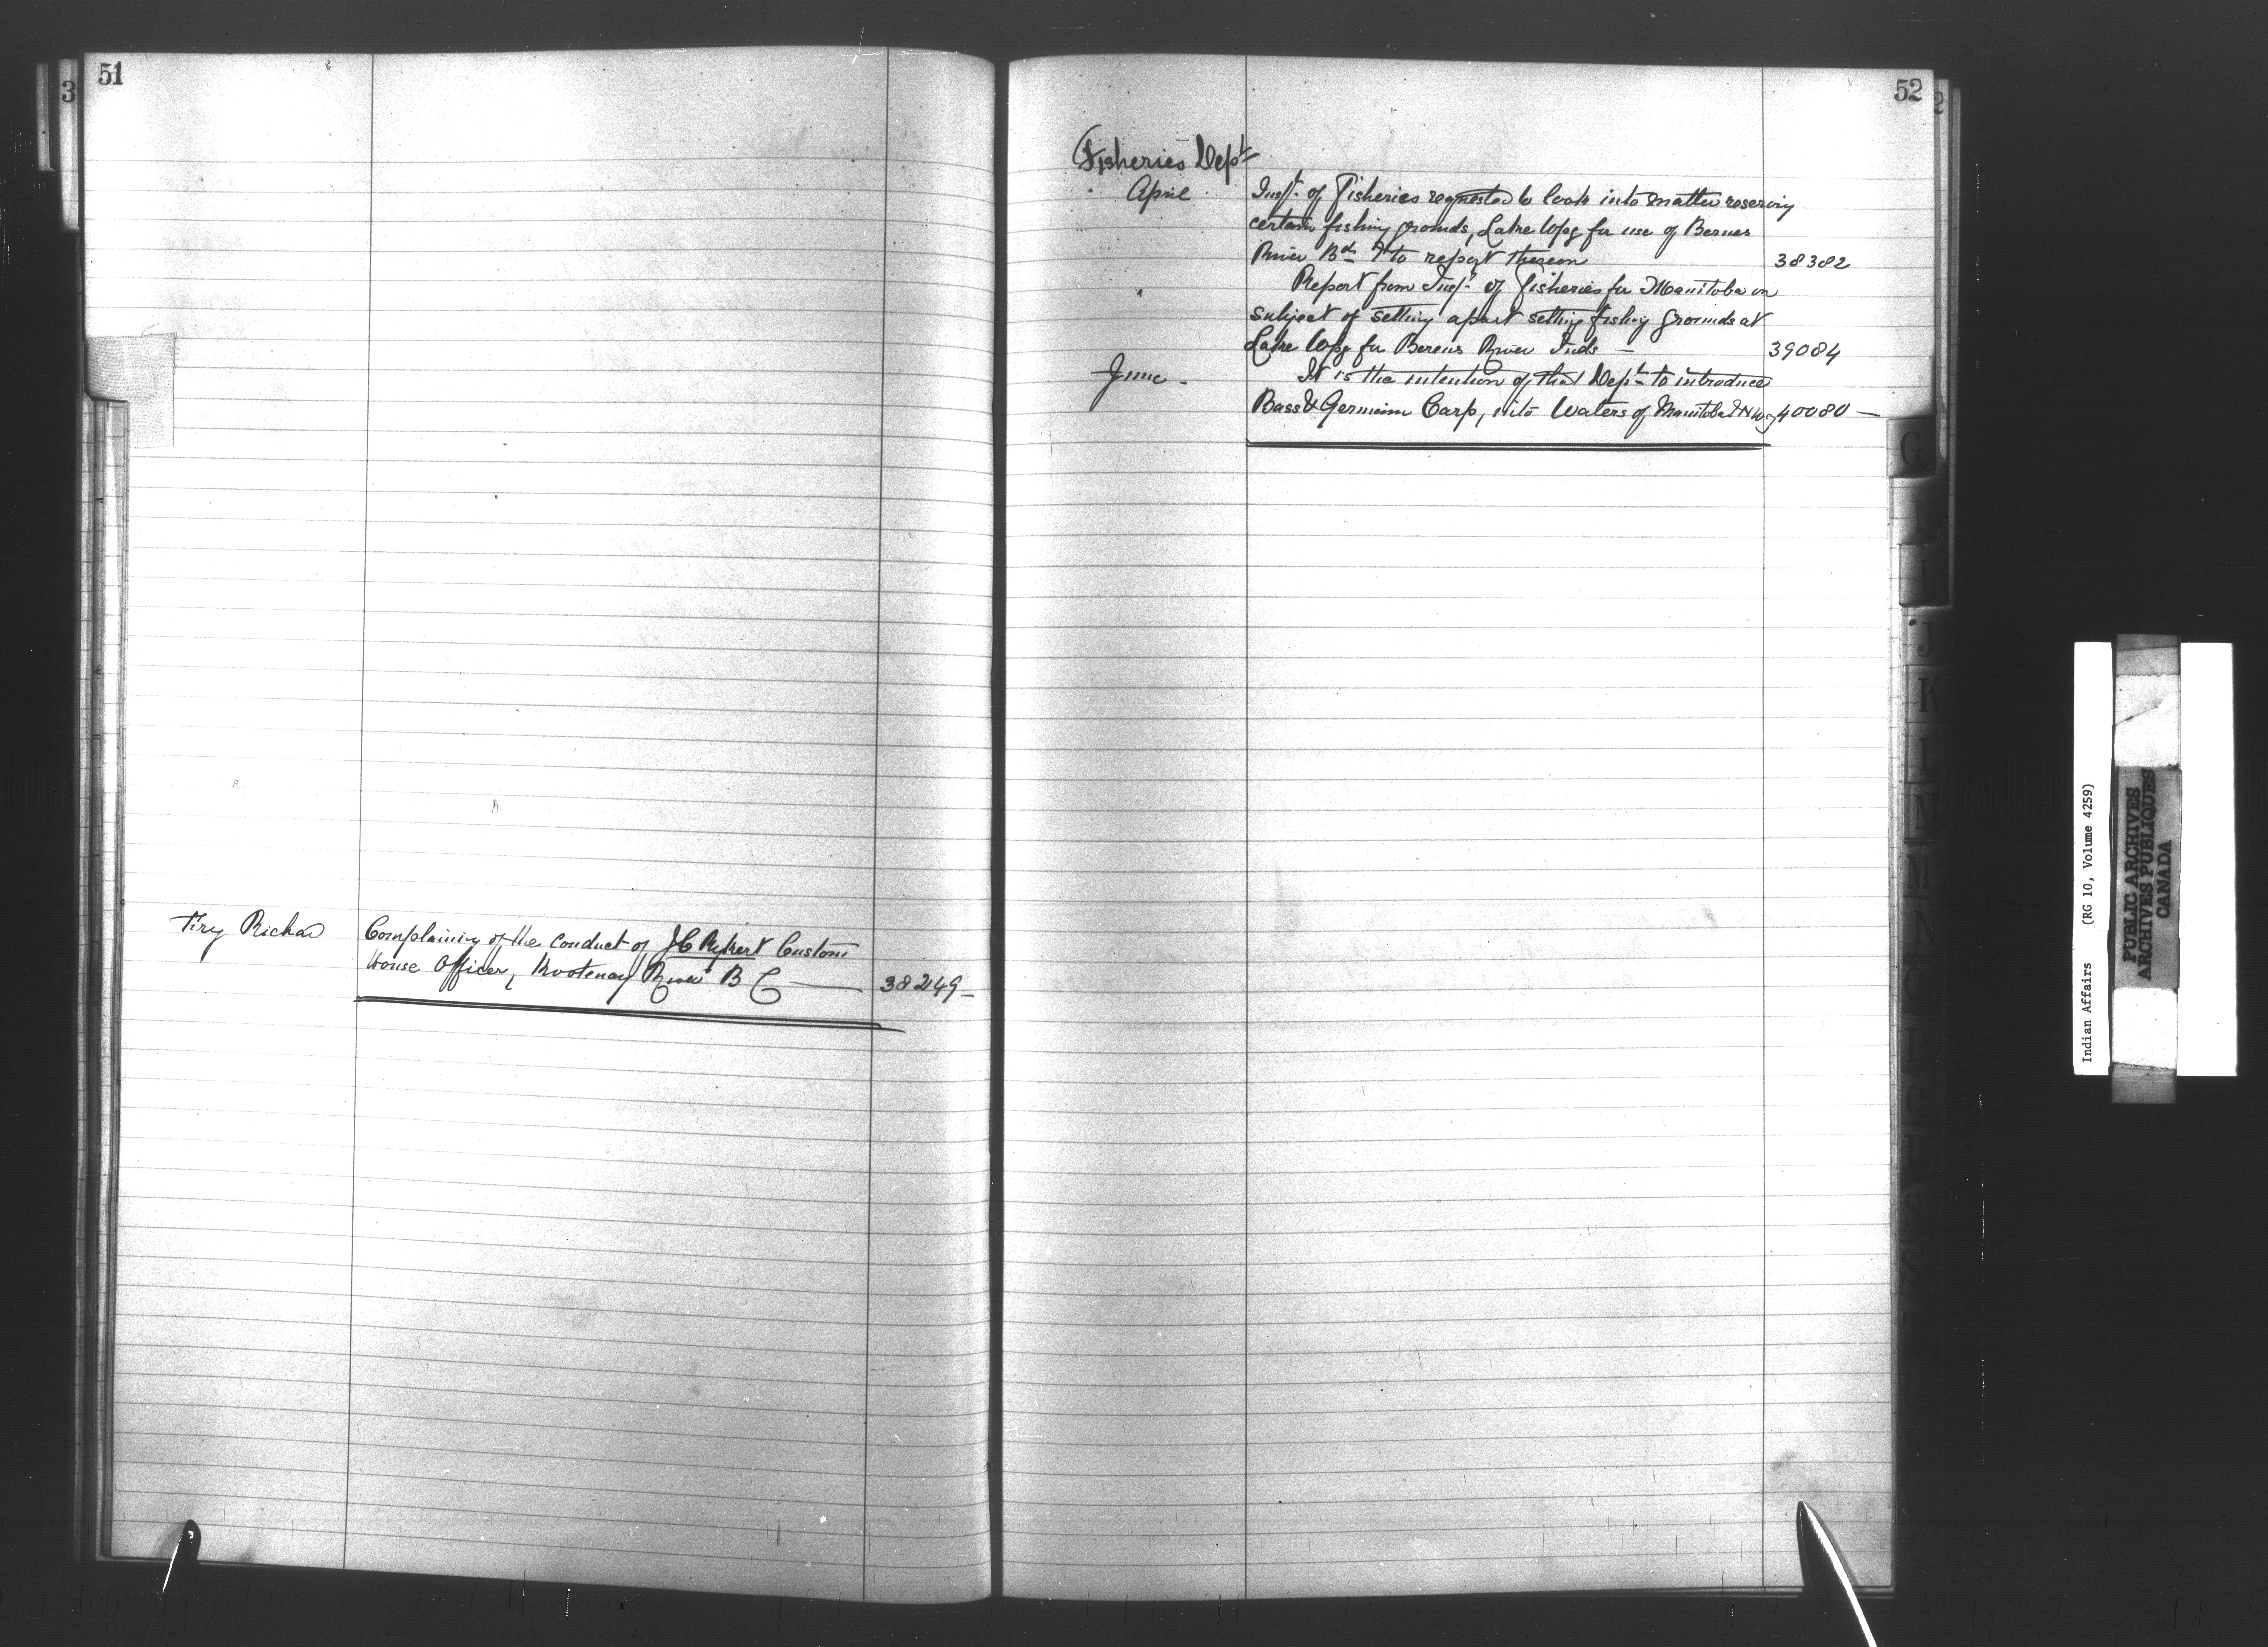 51
Fry Richard
Complaining of the conduct of J C Rykert Custom
House Officer, Kootenay River B C —
38249 —
52
Fisheries Dept
April
Inspt. of Fisheries requested to look into matter reserving
certain fishing grounds, Lake Wpg for use of Berens
River Bd & to report thereon
38382
Report from Inspt. of Fisheries for Manitoba on
subject of setting apart setting fishing grounds at
Lake Wpg for Berens River Inds —
39084
June -
It is the intention of that Dept to introduce
Bass & German Carp, into Waters of Manitoba & N W
40080 —
G
J
K
L
M
N
Indian Affairs (RG 10, Volume 4259)
PUBLIC ARCHIVES
ARCHIVES PUBLIQUES
CANADA